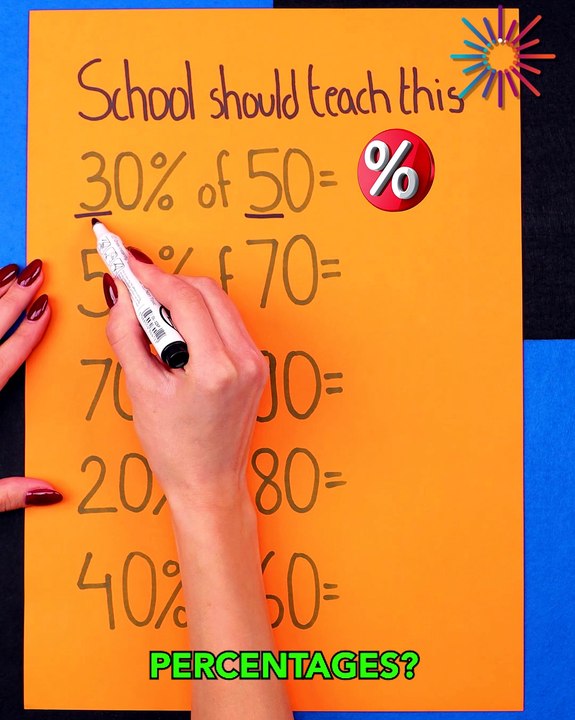 School should teach this
30% of 50= %
70=
20% 80=
40% 60=
PERCENTAGES?